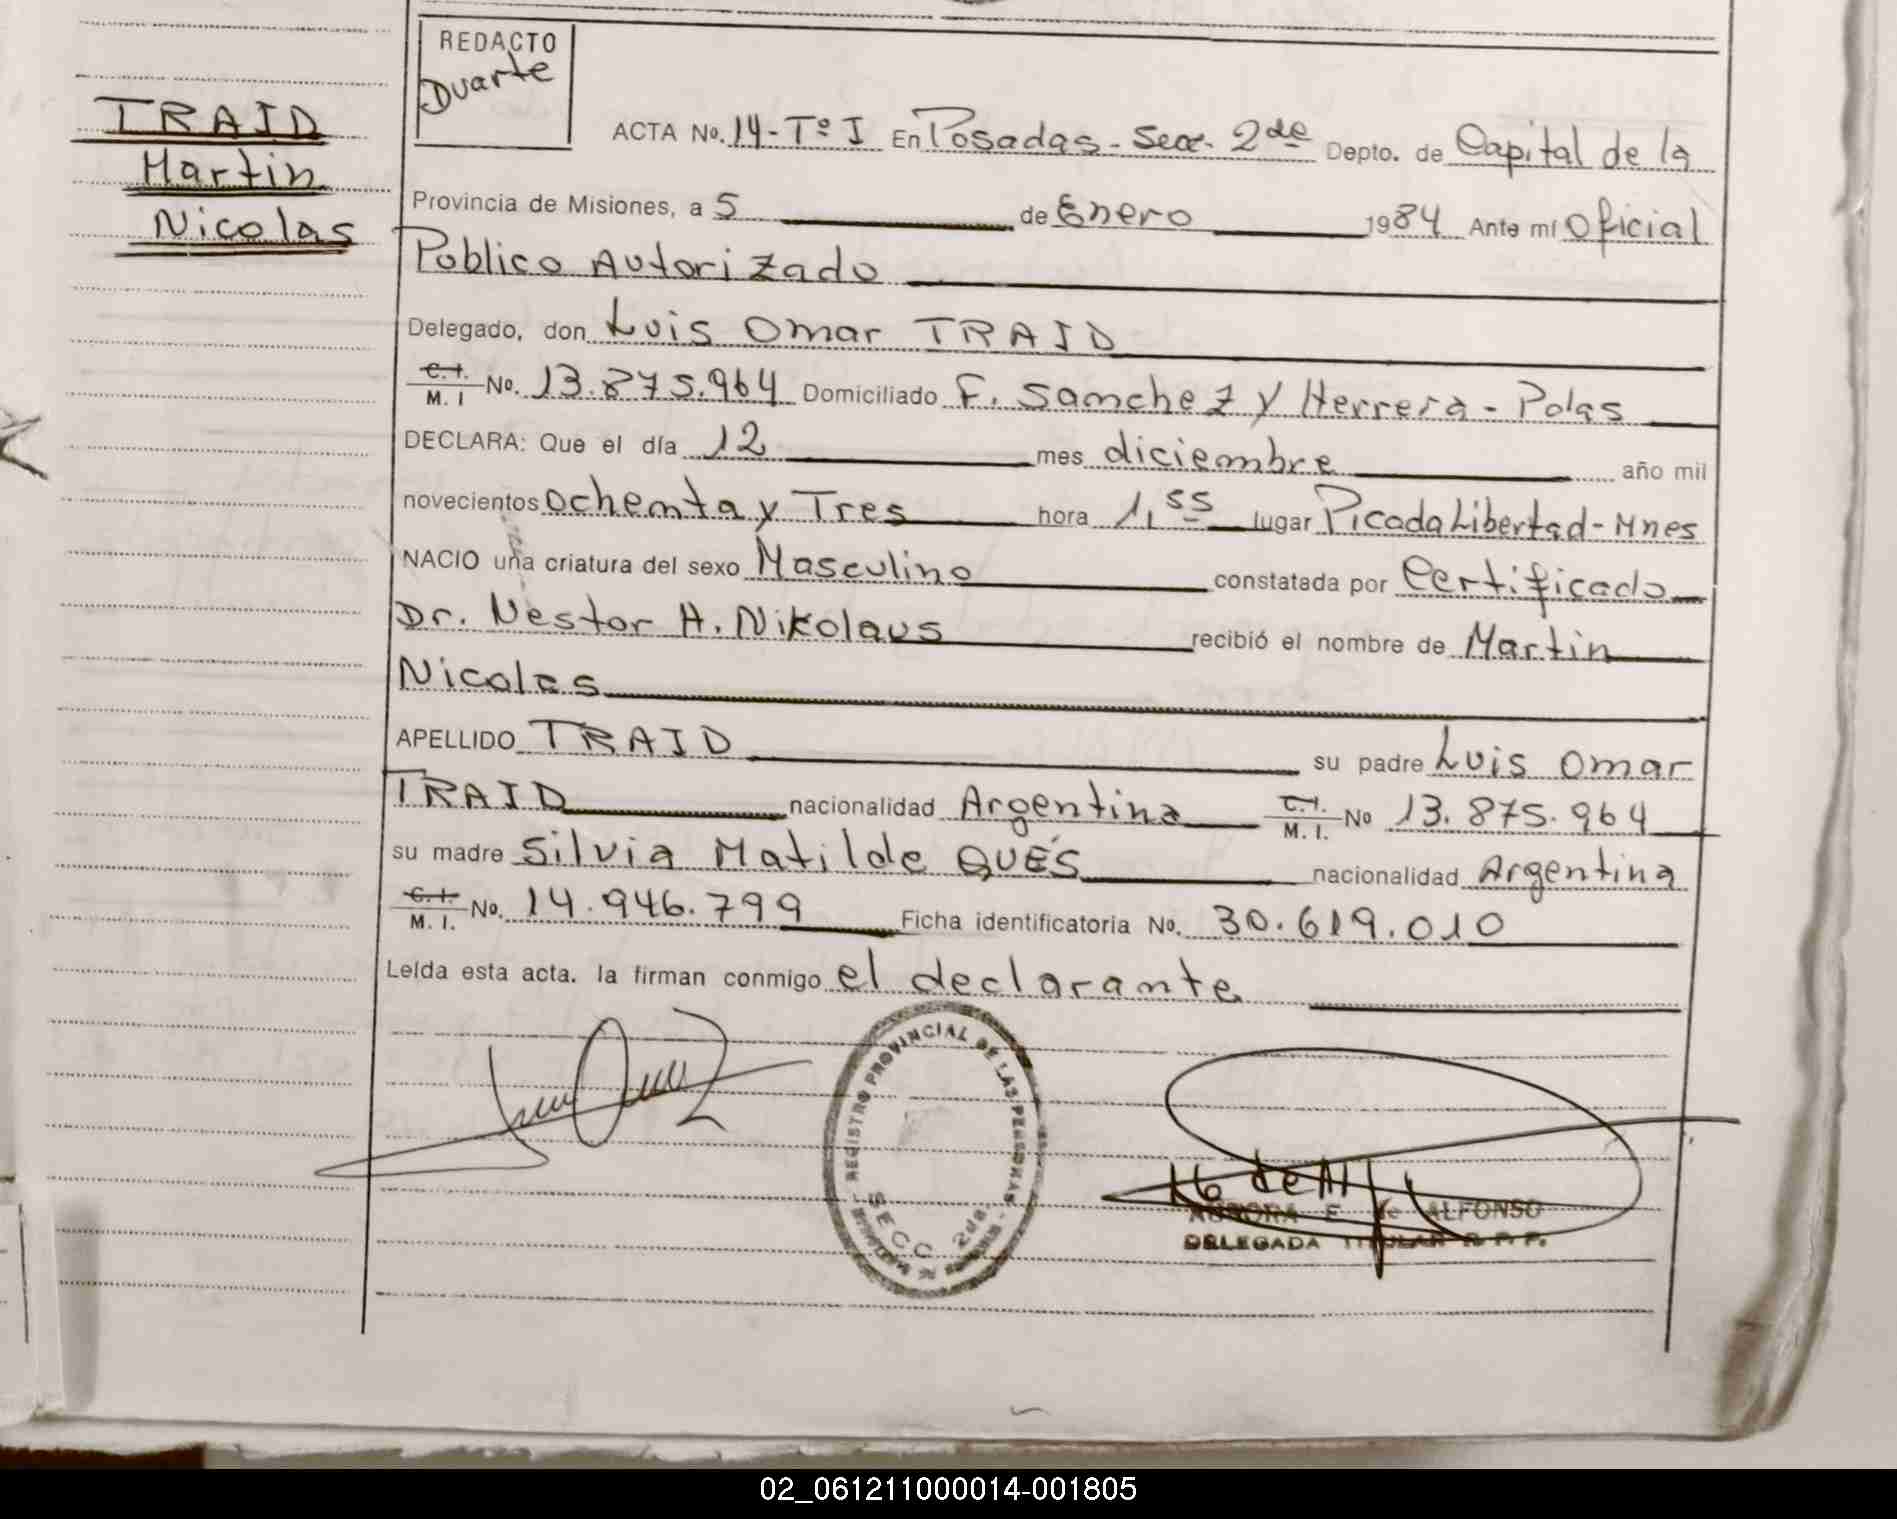 REDACTO
Duarte
TRAID
Martin
Nicolas
ACTA No. 14-Tº I En Posadas - Secc. 2da Depto. de Capital de la
Provincia de Misiones, a 5 de Enero 1984 Ante mí Oficial
Público Autorizado
Delegado, don Luis Omar TRAID
C.I. M. I No. 13.875.964 Domiciliado F. Sanchez y Herrera - Pdas
DECLARA: Que el día 12 mes diciembre año mil
novecientos ochenta y Tres hora 1,55 lugar Picada Libertad - Mnes
NACIO una criatura del sexo Masculino constatada por Certificado
Dr. Nestor H. Nikolaus recibió el nombre de Martin
Nicolas
APELLIDO TRAID su padre Luis Omar
TRAID nacionalidad Argentina C.I. M. I. No 13.875.964
su madre Silvia Matilde QUÉS nacionalidad Argentina
C.I. M. I. No. 14.946.799 Ficha identificatoria No. 30.619.010
Leída esta acta. la firman conmigo el declarante
REGISTRO PROVINCIAL DE LAS PERSONAS
SECC 2da.
AURORA E. de ALFONSO
DELEGADA TITULAR R. P. P.
02_061211000014-001805